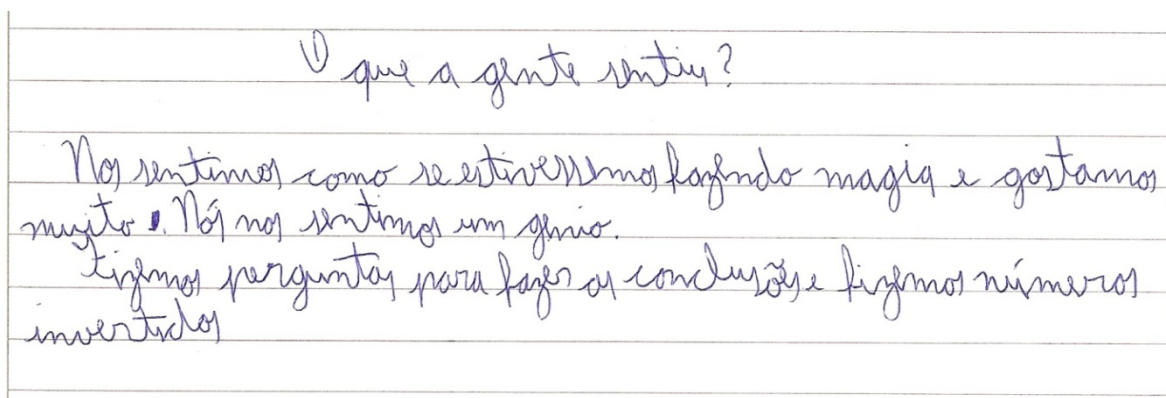 O que a gente sentiu?
Nos sentimos como se estivessemos fazendo magia e gostamos
muito. Nós nos sentimos um genio.
Fizemos perguntas para fazer as conclusões e fizemos números
invertidos